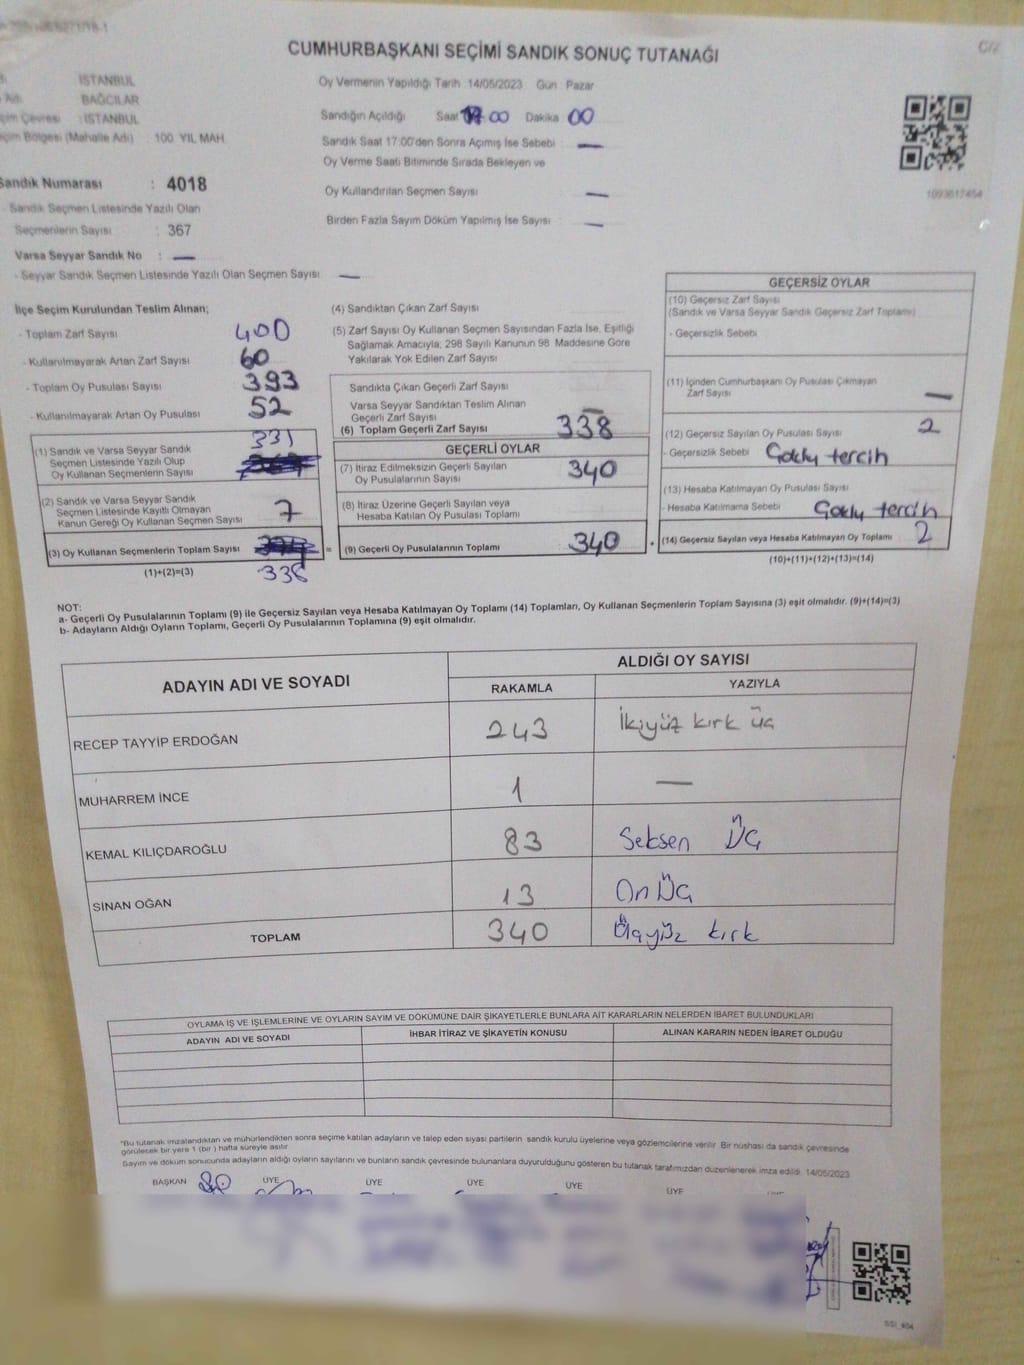 CUMHURBAŞKANI SEÇİMİ SANDIK SONUÇ TUTANAĞI
İSTANBUL
BAĞCILAR
İSTANBUL
(Mahalle Adı) 100. YIL MAH
Sandık Numarası : 4018
Sandık Seçmen Listesinde Yazılı Olan
Seçmenlerin Sayısı : 367
Varsa Seyyar Sandık No : —
- Seyyar Sandık Seçmen Listesinde Yazılı Olan Seçmen Sayısı : —
Oy Vermenin Yapıldığı Tarih 14/05/2023 Gün Pazar
Sandığın Açıldığı Saat 17.00 Dakika 00
Sandık Saat 17:00'den Sonra Açımış İse Sebebi : —
Oy Verme Saati Bitiminde Sırada Bekleyen ve
Oy Kullandırılan Seçmen Sayısı —
Birden Fazla Sayım Döküm Yapılmış İse Sayısı : —
1093617454
İlçe Seçim Kurulundan Teslim Alınan;
- Toplam Zarf Sayısı 400
- Kullanılmayarak Artan Zarf Sayısı 60
- Toplam Oy Pusulası Sayısı 393
- Kullanılmayarak Artan Oy Pusulası 52
331
(1) Sandık ve Varsa Seyyar Sandık
Seçmen Listesinde Yazılı Olup
Oy Kullanan Seçmenlerin Sayısı
(2) Sandık ve Varsa Seyyar Sandık
Seçmen Listesinde Kayıtlı Olmayan
Kanun Gereği Oy Kullanan Seçmen Sayısı 7
(3) Oy Kullanan Seçmenlerin Toplam Sayısı
(1)+(2)=(3) 338
(4) Sandıktan Çıkan Zarf Sayısı
(5) Zarf Sayısı Oy Kullanan Seçmen Sayısından Fazla İse, Eşitliği
Sağlamak Amacıyla; 298 Sayılı Kanunun 98. Maddesine Göre
Yakılarak Yok Edilen Zarf Sayısı
Sandıkta Çıkan Geçerli Zarf Sayısı
Varsa Seyyar Sandıktan Teslim Alınan
Geçerli Zarf Sayısı —
(6) Toplam Geçerli Zarf Sayısı 338
GEÇERLİ OYLAR
(7) İtiraz Edilmeksizin Geçerli Sayılan
Oy Pusulasının Sayısı 340
(8) İtiraz Üzerine Geçerli Sayılan veya
Hesaba Katılan Oy Pusulası Toplamı
= (9) Geçerli Oy Pusulalarının Toplamı 340
GEÇERSİZ OYLAR
(10) Geçersiz Zarf Sayısı
(Sandık ve Varsa Seyyar Sandık Geçersiz Zarf Toplamı)
- Geçersizlik Sebebi
(11) İçinden Cumhurbaşkanı Oy Pusulası Çıkmayan
Zarf Sayısı —
(12) Geçersiz Sayılan Oy Pusulası Sayısı 2
- Geçersizlik Sebebi Çoklu tercih
(13) Hesaba Katılmayan Oy Pusulası Sayısı
- Hesaba Katılmama Sebebi Çoklu tercih
+ (14) Geçersiz Sayılan veya Hesaba Katılmayan Oy Toplamı 2
(10)+(11)+(12)+(13)=(14)
NOT:
a- Geçerli Oy Pusulalarının Toplamı (9) ile Geçersiz Sayılan veya Hesaba Katılmayan Oy Toplamı (14) Toplamları, Oy Kullanan Seçmenlerin Toplam Sayısına (3) eşit olmalıdır. (9)+(14)=(3)
b- Adayların Aldığı Oyların Toplamı, Geçerli Oy Pusulalarının Toplamına (9) eşit olmalıdır.
ADAYIN ADI VE SOYADI ALDIĞI OY SAYISI
RAKAMLA YAZIYLA
RECEP TAYYİP ERDOĞAN 243 İkiyüz kırk üç
MUHARREM İNCE 1 —
KEMAL KILIÇDAROĞLU 83 Seksen Üç
SİNAN OĞAN 13 On Üç
TOPLAM 340 Üçyüz kırk
OYLAMA İŞ VE İŞLEMLERİNE VE OYLARIN SAYIM VE DÖKÜMÜNE DAİR ŞİKAYETLERLE BUNLARA AİT KARARLARIN NELERDEN İBARET BULUNDUKLARI
ADAYIN ADI VE SOYADI İHBAR İTİRAZ VE ŞİKAYETİN KONUSU ALINAN KARARIN NEDEN İBARET OLDUĞU
*Bu tutanak imzalandıktan ve mühürlendikten sonra seçime katılan adayların ve talep eden siyasi partilerin sandık kurulu üyelerine veya gözlemcilerine verilir. Bir nüshası da sandık çevresinde
görülecek bir yere 1 (bir) hafta süreyle asılır.
Sayım ve döküm sonucunda adayların aldığı oyların sayılarını ve bunların sandık çevresinde bulunanlara duyurulduğunu gösteren bu tutanak tarafımızdan düzenlenerek imza edildi. 14/05/2023
BAŞKAN ÜYE ÜYE ÜYE ÜYE ÜYE